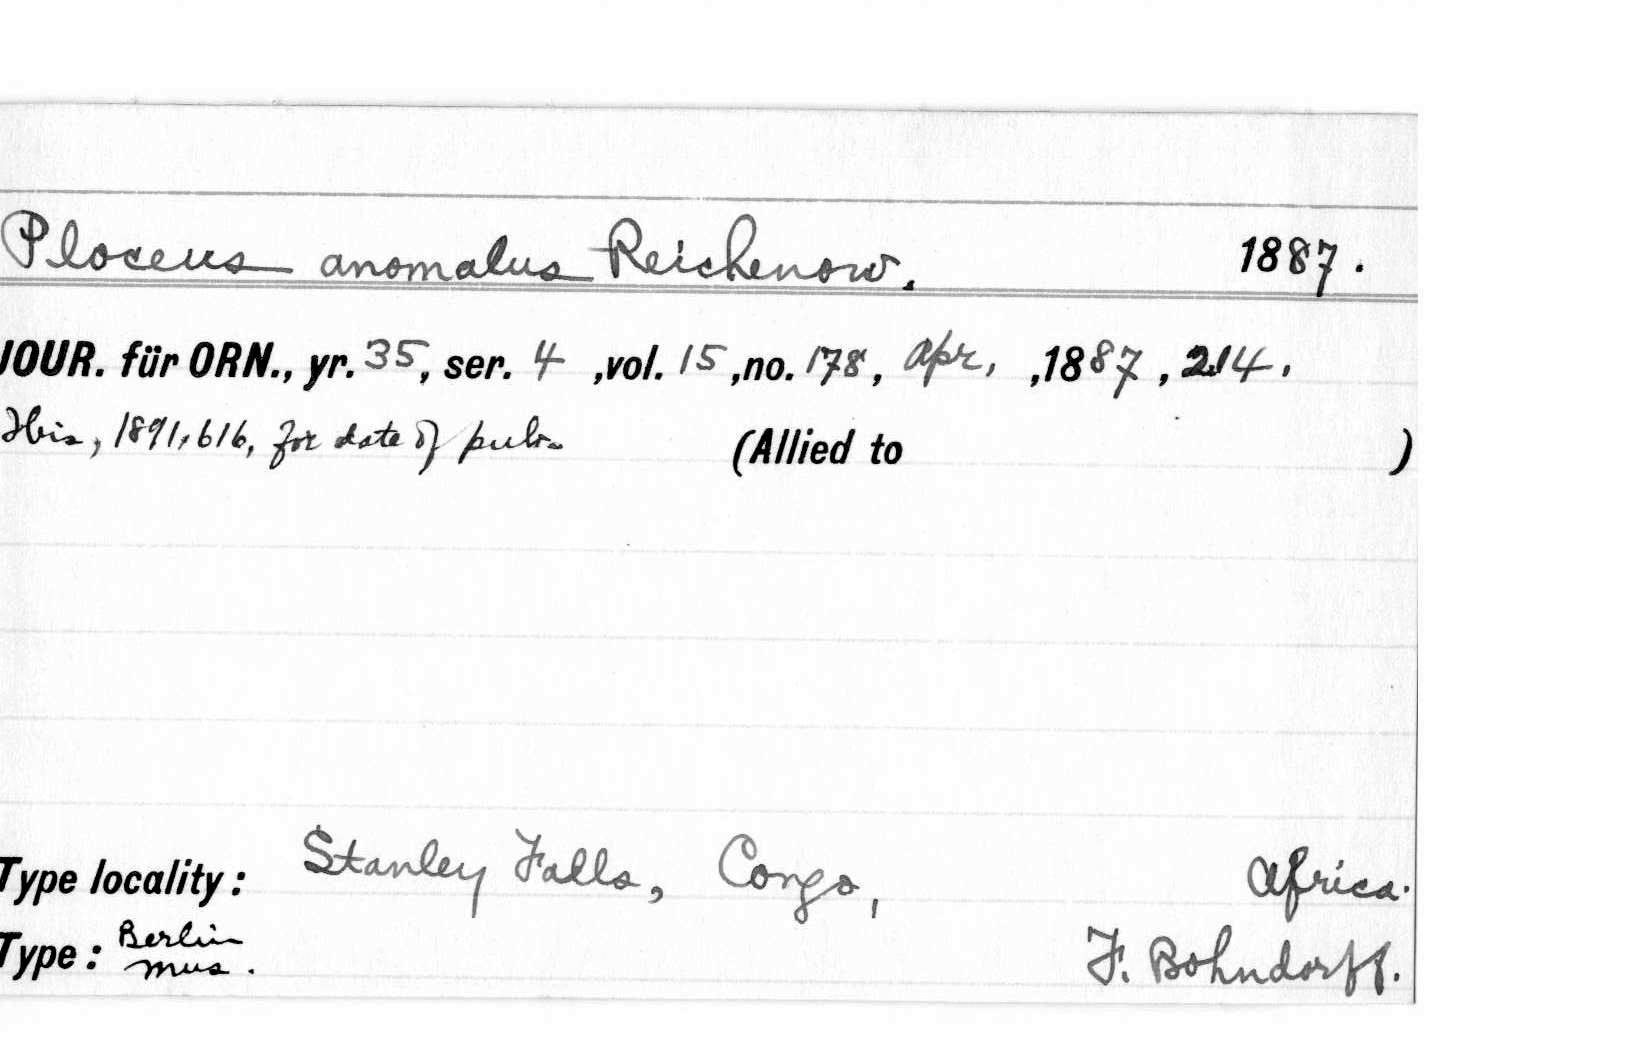 Ploceus anomalus Reichenow. 1887.
JOUR. für ORN., yr. 35, ser. 4, vol. 15, no. 178, Apr., 1887, 214.
Ibis, 1891, 616, for date of pub. (Allied to )
Type locality: Stanley Falls, Congo, Africa.
Type: Berlin Mus. F. Bohndorff.